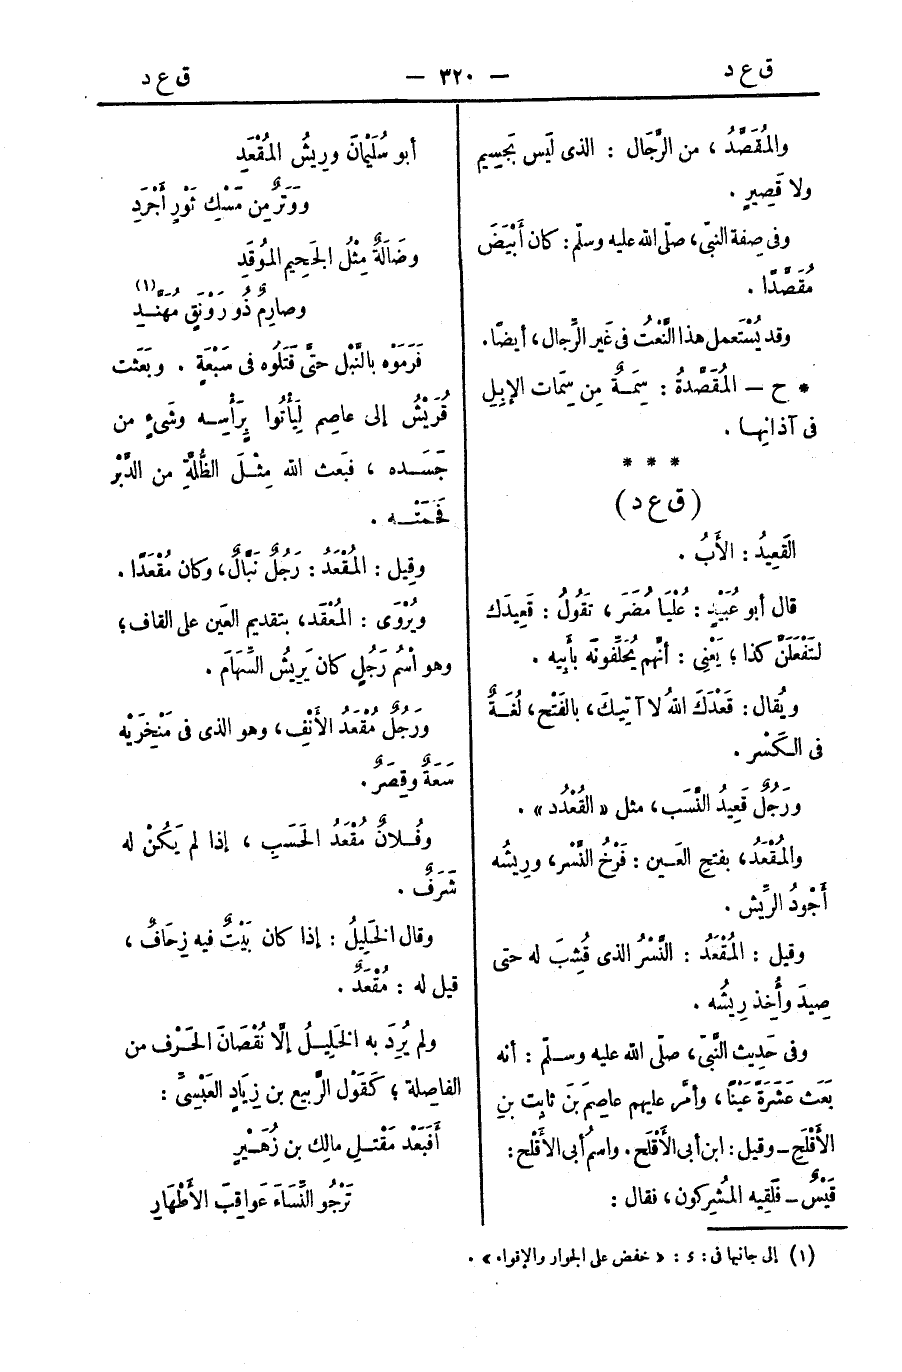 ق ع د
— ٣٢٠ —
ق ع د
والمُقَصَّدُ ، من الرَّجَال : الذى لَيس بجَسِيم
ولا قَصِيرٍ .
وفى صِفة النبىّ، صلّى الله عليه وسلّم: كان أَبْيَضَ
مُقَصَّدًا .
وقد يُسْتَعمل هذا النَّعْتُ فى غَير الرِّجال، أيضًا.
* ح – المُقَصَّدةُ : سِمَةٌ مِن سِمَات الإبِلِ
فى آذانِها .
* * *
( ق ع د )
القَعِيدُ : الأَبُ .
قال أبو عُبَيْدٍ : عُلْيَا مُضَرَ ، تَقُولُ : قَعِيدَك
لتَفْعَلَنَّ كذا ؛ يَعْنِى : أنّهم يُحَلِّفونَه بأَبِيه .
ويُقال : قَعْدَكَ اللهُ لا آتِيكَ، بالفَتْح، لُغَةٌ
فى الكَسْر .
ورَجُلٌ قَعِيدُ النَّسَب، مثل «القُعْدُد» .
والمُقْعَدُ، بفتح العَين : فَرْخُ النَّسْر، ورِيشُه
أَجْودُ الرِّيش .
وقيل : المُقْعَدُ : النَّسْرُ الذى قُشِبَ له حتى
صِيدَ وأُخِذ رِيشُه .
وفى حَدِيث النَّبىّ، صلّى الله عليه وسلّم : أنه
بَعَث عَشَرَةً عَيْنًا، وأمَّر عليهم عاصِمَ بنَ ثابِت بنِ
الأَقْلَحِ – وقيل : ابن أبى الأَقْلَح. واسمُ أبى الأَقْلح:
قَيْسٌ – فلَقِيه المُشرِكون، فقال :
أبو سُلَيْمَانَ ورِيشُ المُقْعَدِ
ووَتَرٌ مِن مَسْكِ ثَوْرٍ أَجْرَدِ
وضَالَةٌ مِثْلُ الجَحِيم المُوقَدِ
وصارِمٌ ذُو رَوْنَقٍ مُهَنَّدِ (١)
فَرَمَوْه بالنَّبْل حتَّى قَتَلُوه فى سَبْعَةٍ . وبَعَثت
قُرَيْشٌ إلى عاصِم لِيَأْتُوا بِرَأْسِه وشَىءٍ من
جَسَده ، فبَعث الله مِثْلَ الظُّلَّةِ من الدَّبْر
فَحَمَتْه .
وقِيل : المُقْعَدُ : رَجُلٌ نَبَّالٌ، وكان مُقْعَدًا .
ويُرْوَى : المُعْقَد، بتقديم العَين على القاف؛
وهو اسْمُ رَجُلٍ كان يَرِيشُ السِّهَامَ .
ورَجُلٌ مُقْعَدُ الأَنْف، وهو الذى فى مَنْخِرَيْه
سَعَةٌ وقِصَرٌ .
وفُلانٌ مُقْعَدُ الحَسَبِ ، إذا لم يَكُنْ له
شَرَفٌ .
وقال الخَلِيلُ : إذا كان بَيْتٌ فيه زِحَافٌ ،
قيل له : مُقْعَدٌ .
ولم يُرِدَ به الخَلِيلُ إلَّا نُقْصَانَ الحَرْف من
الفاصِلة ؛ كَقَوْل الرَّبيع بن زِيَادٍ العَبْسِىِّ :
أَفَبَعْدَ مَقْتلِ مالِك بن زُهَيْرٍ
تَرْجُو النِّسَاءُ عَواقِبَ الأَطْهَارِ
(١) إلى جانبها فى : ٤ : « خفض على الجوار والإقواء » .